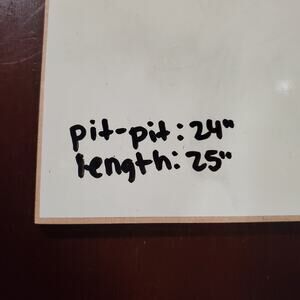 pit-pit: 24"
length: 25"